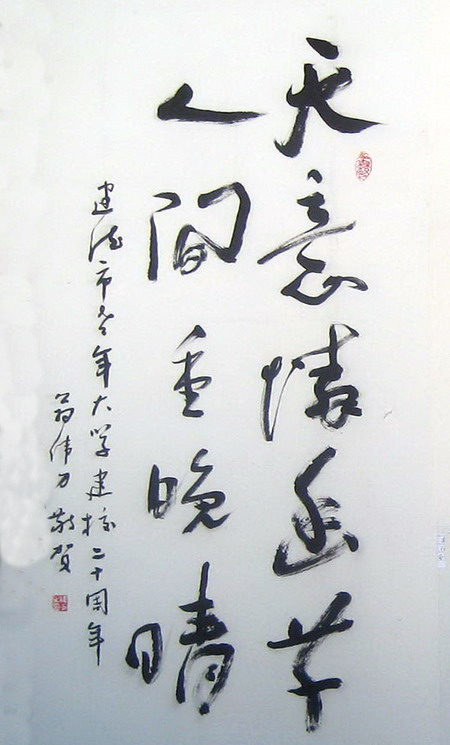 天意憐幽草
人间重晚晴
建德市老年大学建校二十周年
翁伟力敬贺